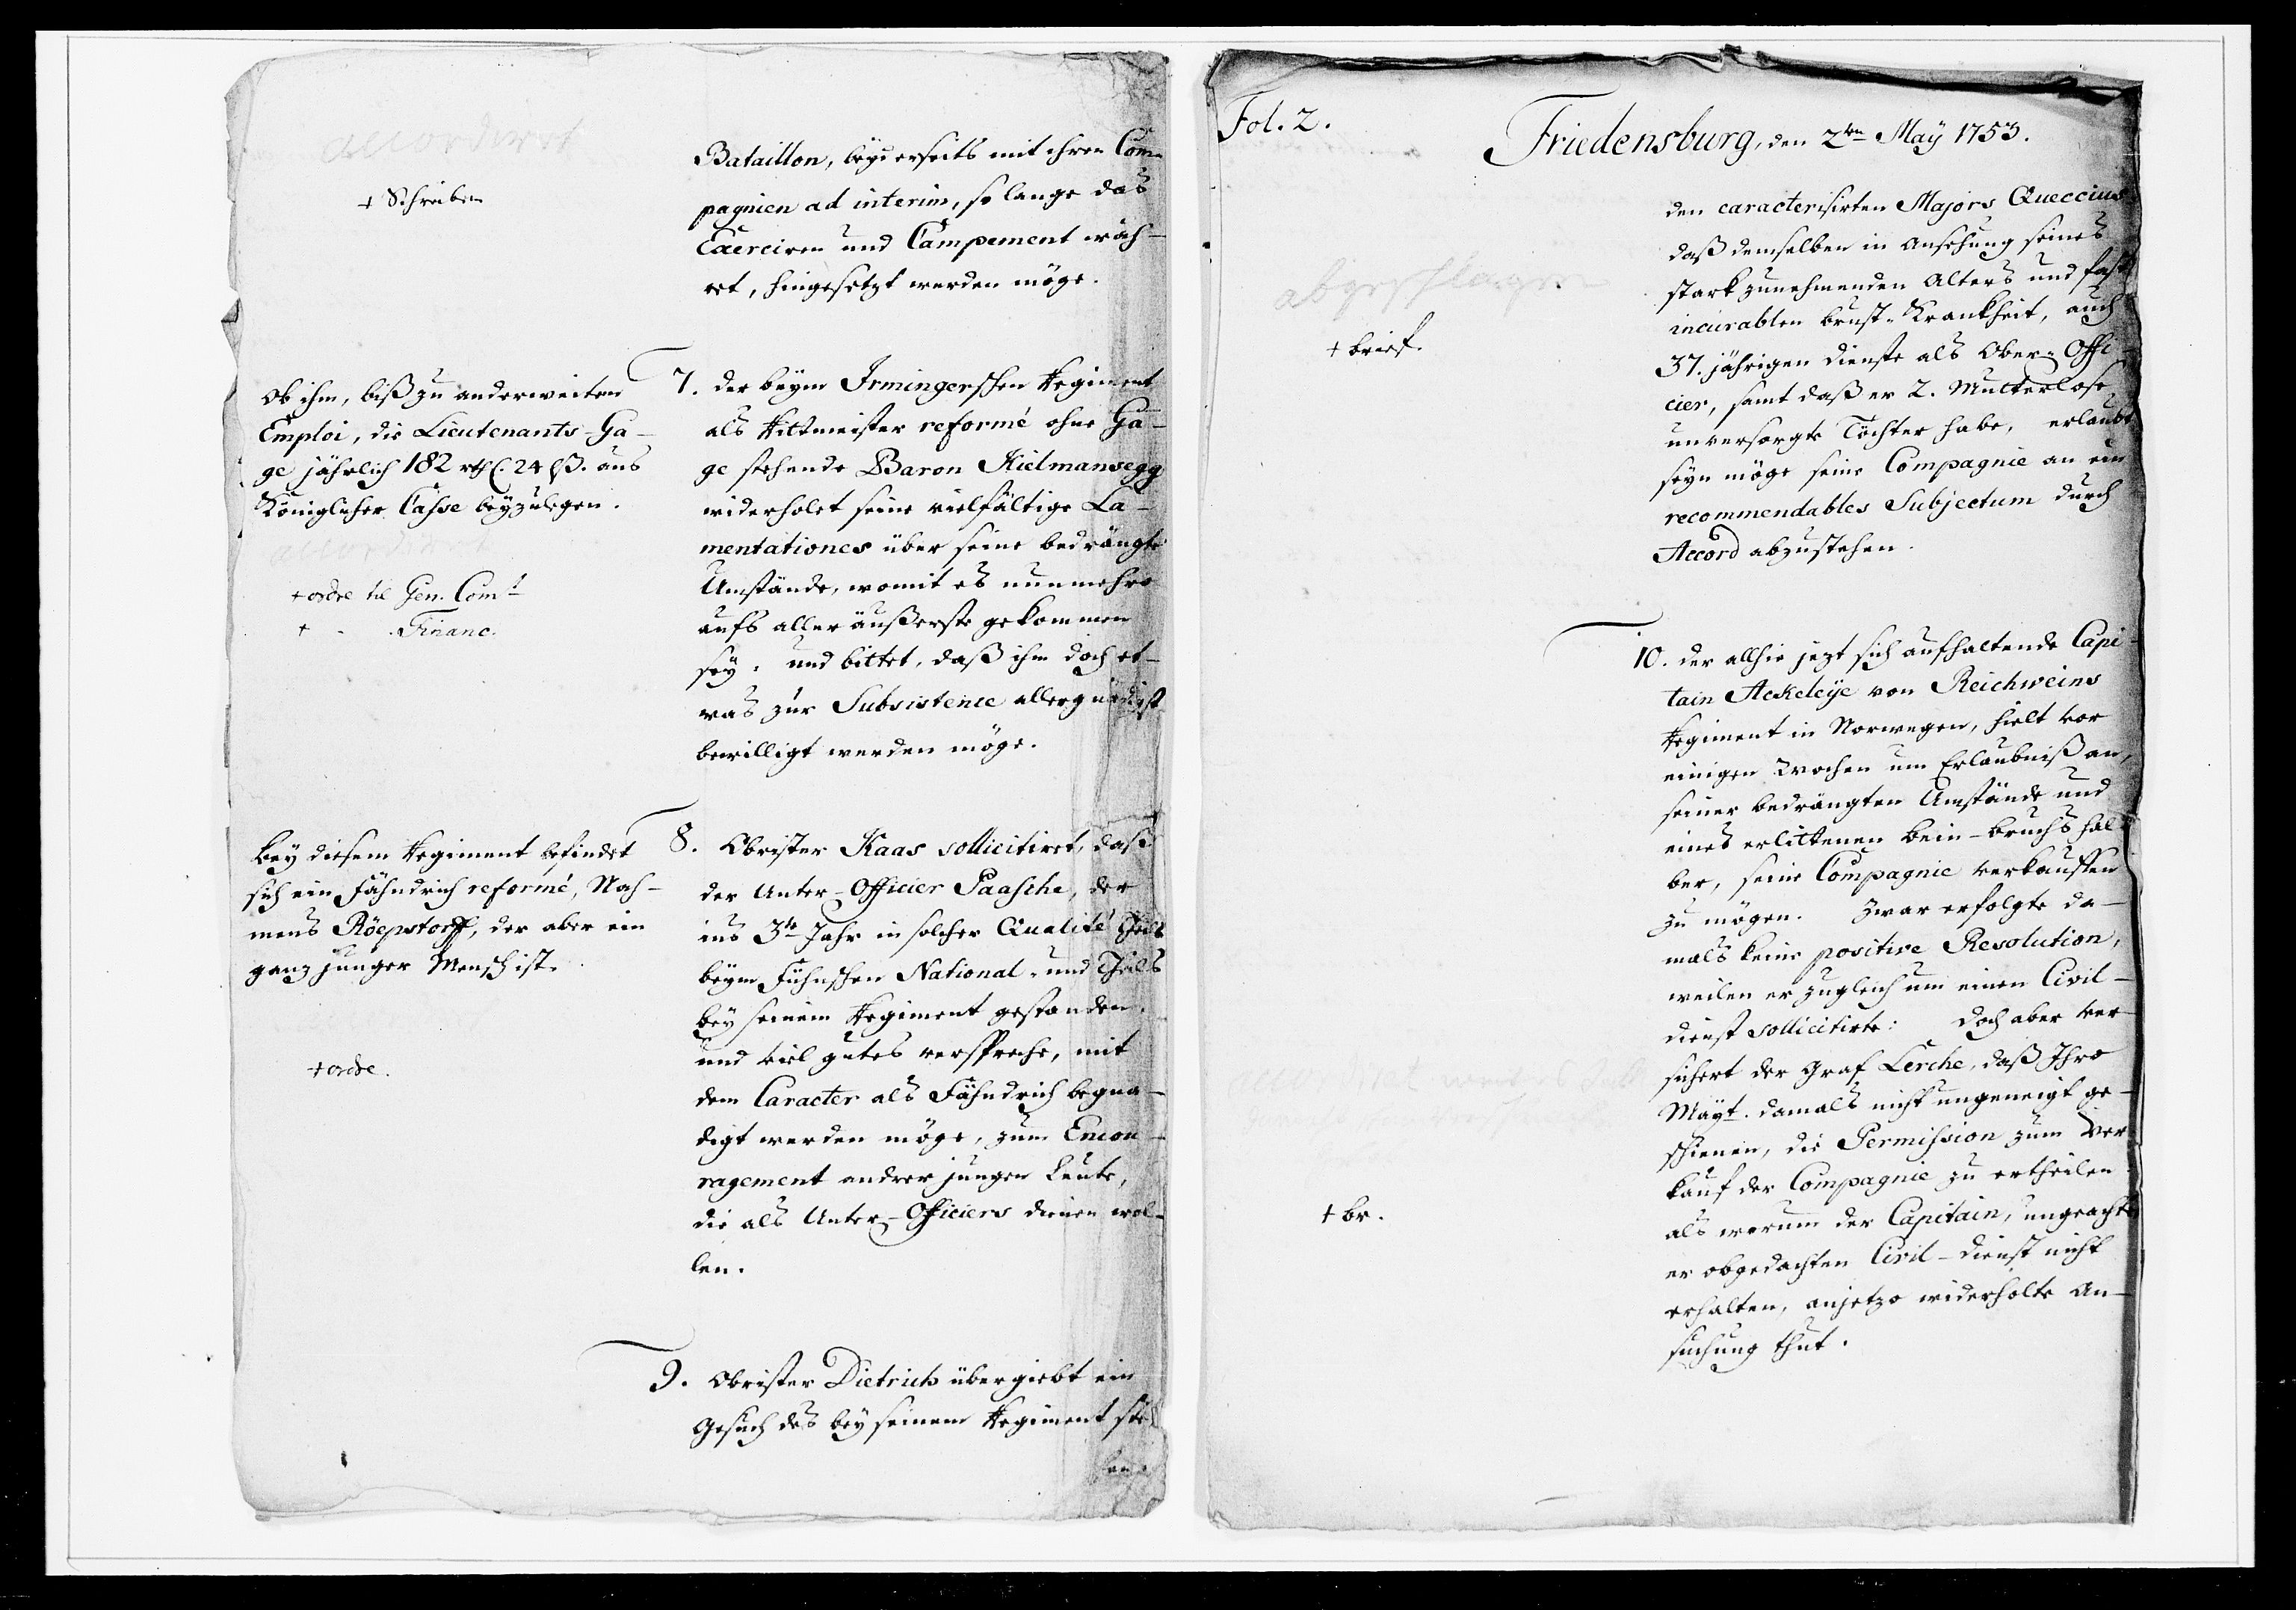 accordiret
+ Schreiben
Bataillon, beyderseits mit ihren Com-
pagnien ad interim, so lange das
Exerciren und Campement wäh-
ret, hingesetzt werden möge.
Ob ihm, biß zu anderweiten
Emploi, die Lieutenants-Ga-
ge jährlich 182 rthl. 24 ß. aus
Königlicher Casse beyzulegen.
accordiret
+ ordre til Gen. Comt
+ - Financ.
7. der beym Irmingerschen Regiment
als Rittmeister reformé ohne Ga-
ge stehende Baron Kielmansegg
widerholet seine vielfältige La-
mentationes über seine bedrängte
Umstände, womit es nunmehro
aufs alleräußerste gekommen
sey, und bittet, daß ihm doch et-
was zur Subsistence allergnädigst
bewilligt werden möge.
bey diesem Regiment befindet
sich ein Fähndrich reformé, Nah-
mens Röepstorff, der aber ein
ganz junger Mensch ist.
+ ordre.
8. Obrister Kaas sollicitiret, daß
der Unter-Officier Paasche, der
ins 3te Jahr in solcher Qualité theils
beym Fühnschen National- und theils
bey seinem Regiment gestanden,
und viel gutes verspreche, mit
dem Caracter als Fähndrich begna-
digt werden möge, zum Encou-
ragement andrer jungen Leute,
die als Unter-Officiers dienen wol-
len.
9. Obrister Dietrich übergiebt ein
Gesuch des bey seinem Regiment steh
Fol. 2.
Friedensburg, den 2ten May 1753.
abgeschlagen
+ brief.
den caracterisirten Majors Queccius
daß demselben in Ansehung seines
stark zunehmenden Alters und fast
incurablen brust-Krankheit, auch
37. jährigen dienste als Ober-Offi-
cier, samt daß er 2. Mutterlose
unversorgte Töchter habe, erlaubt
seyn möge seine Compagnie an ein
recommendables Subjectum durch
Accord abzustehen.
10. der allhie jezt sich aufhaltende Capi-
tain Ackeleÿe von Reichweins
Regiment in Norwegen, hielt vor
einigen Wochen um Erlaubniß an,
seiner bedrängten Umstände und
eines erlittenen bein-bruchs hal-
ber, seine Compagnie verkauffen
zu mögen. Zwar erfolgte da-
mals keine positive Resolution,
weilen er zugleich um einen Civil-
dienst sollicitirte: doch aber ver-
sichert der Graf Lerche, daß Ihro
Mayt. damals nicht ungeneigt ge-
schienen, die Permission zum Ver-
kauf der Compagnie zu ertheilen
als warum der Capitain, ungeachtet
er obgedachten Civil-dienst nicht
erhalten, anjetzo widerholte An-
suchung thut.
+ br.